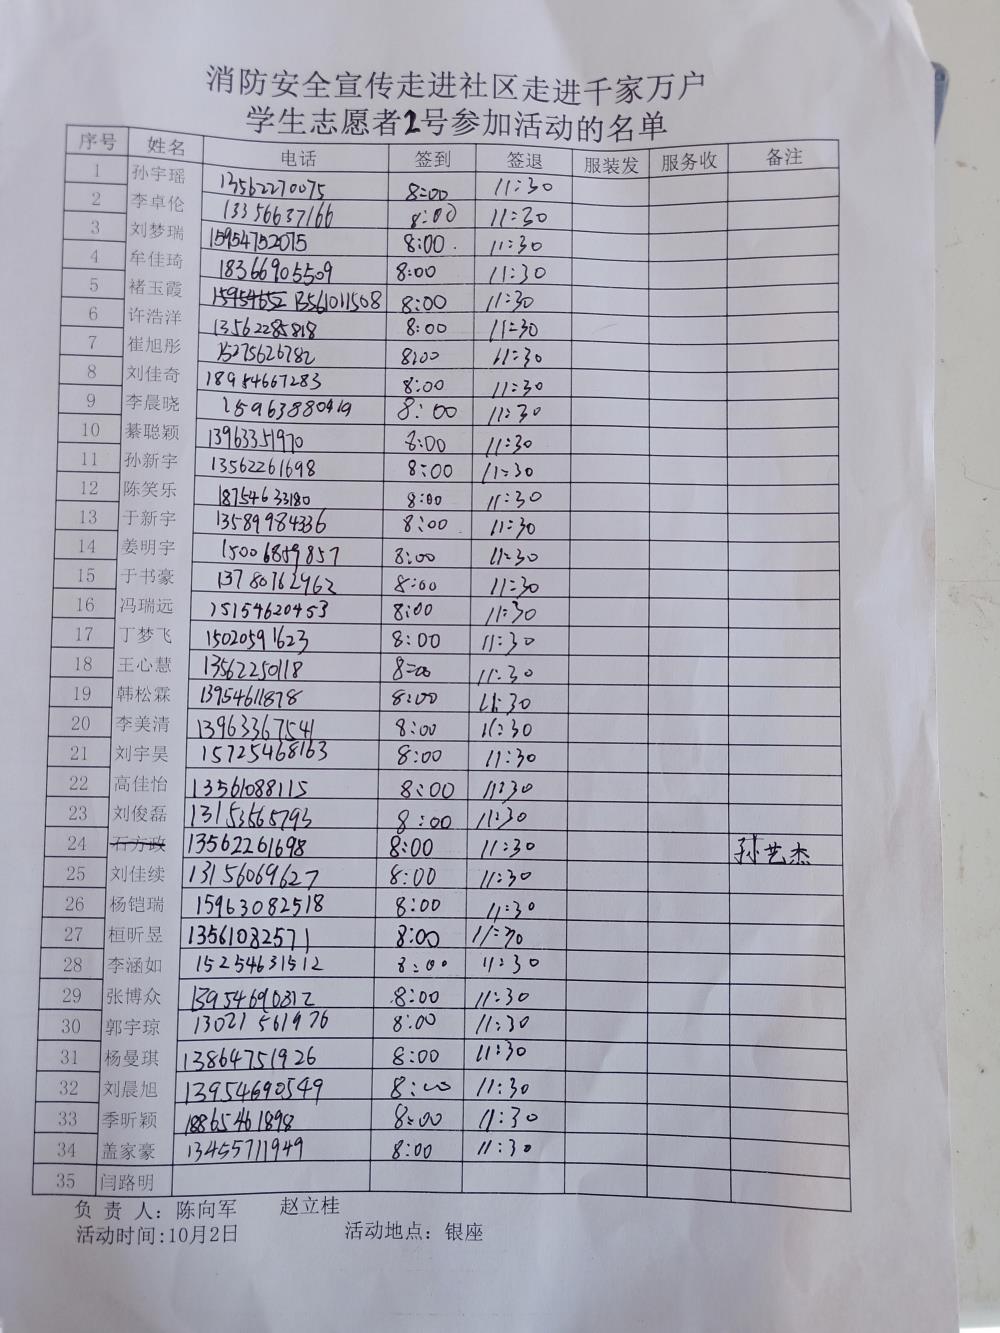 消防安全宣传走进社区走进千家万户
学生志愿者2号参加活动的名单
序号 姓名 电话 签到 签退 服装发 服务收 备注
1 孙宇瑶 13562270075 8:00 11:30
2 李卓伦 13356637166 8:00 11:30
3 刘梦瑞 15954752075 8:00 11:30
4 牟佳琦 18366905509 8:00 11:30
5 褚玉霞 13561011508 8:00 11:30
6 许浩洋 13562285818 8:00 11:30
7 崔旭彤 15275626782 8:00 11:30
8 刘佳奇 18954667283 8:00 11:30
9 李晨晓 15963880419 8:00 11:30
10 綦聪颖 13963351970 8:00 11:30
11 孙新宇 13562261698 8:00 11:30
12 陈笑乐 18754633180 8:00 11:30
13 于新宇 13589984336 8:00 11:30
14 姜明宇 15006859857 8:00 11:30
15 于书豪 13780762962 8:00 11:30
16 冯瑞远 15154620453 8:00 11:30
17 丁梦飞 15020591623 8:00 11:30
18 王心慧 13562250118 8:00 11:30
19 韩松霖 13954611878 8:00 11:30
20 李美清 13963367541 8:00 11:30
21 刘宇昊 15725468163 8:00 11:30
22 高佳怡 13561088115 8:00 11:30
23 刘俊磊 13153565793 8:00 11:30
24 石方政 13562261698 8:00 11:30 孙艺杰
25 刘佳续 13156069627 8:00 11:30
26 杨铠瑞 15963082518 8:00 11:30
27 桓昕昱 13561082571 8:00 11:30
28 李涵如 15254631512 8:00 11:30
29 张博众 13954690312 8:00 11:30
30 郭宇琼 13021561976 8:00 11:30
31 杨曼琪 13864751926 8:00 11:30
32 刘晨旭 13954690549 8:00 11:30
33 季昕颖 18865461898 8:00 11:30
34 盖家豪 13455711949 8:00 11:30
35 闫路明
负 责 人：陈向军 赵立桂
活动时间:10月2日 活动地点：银座